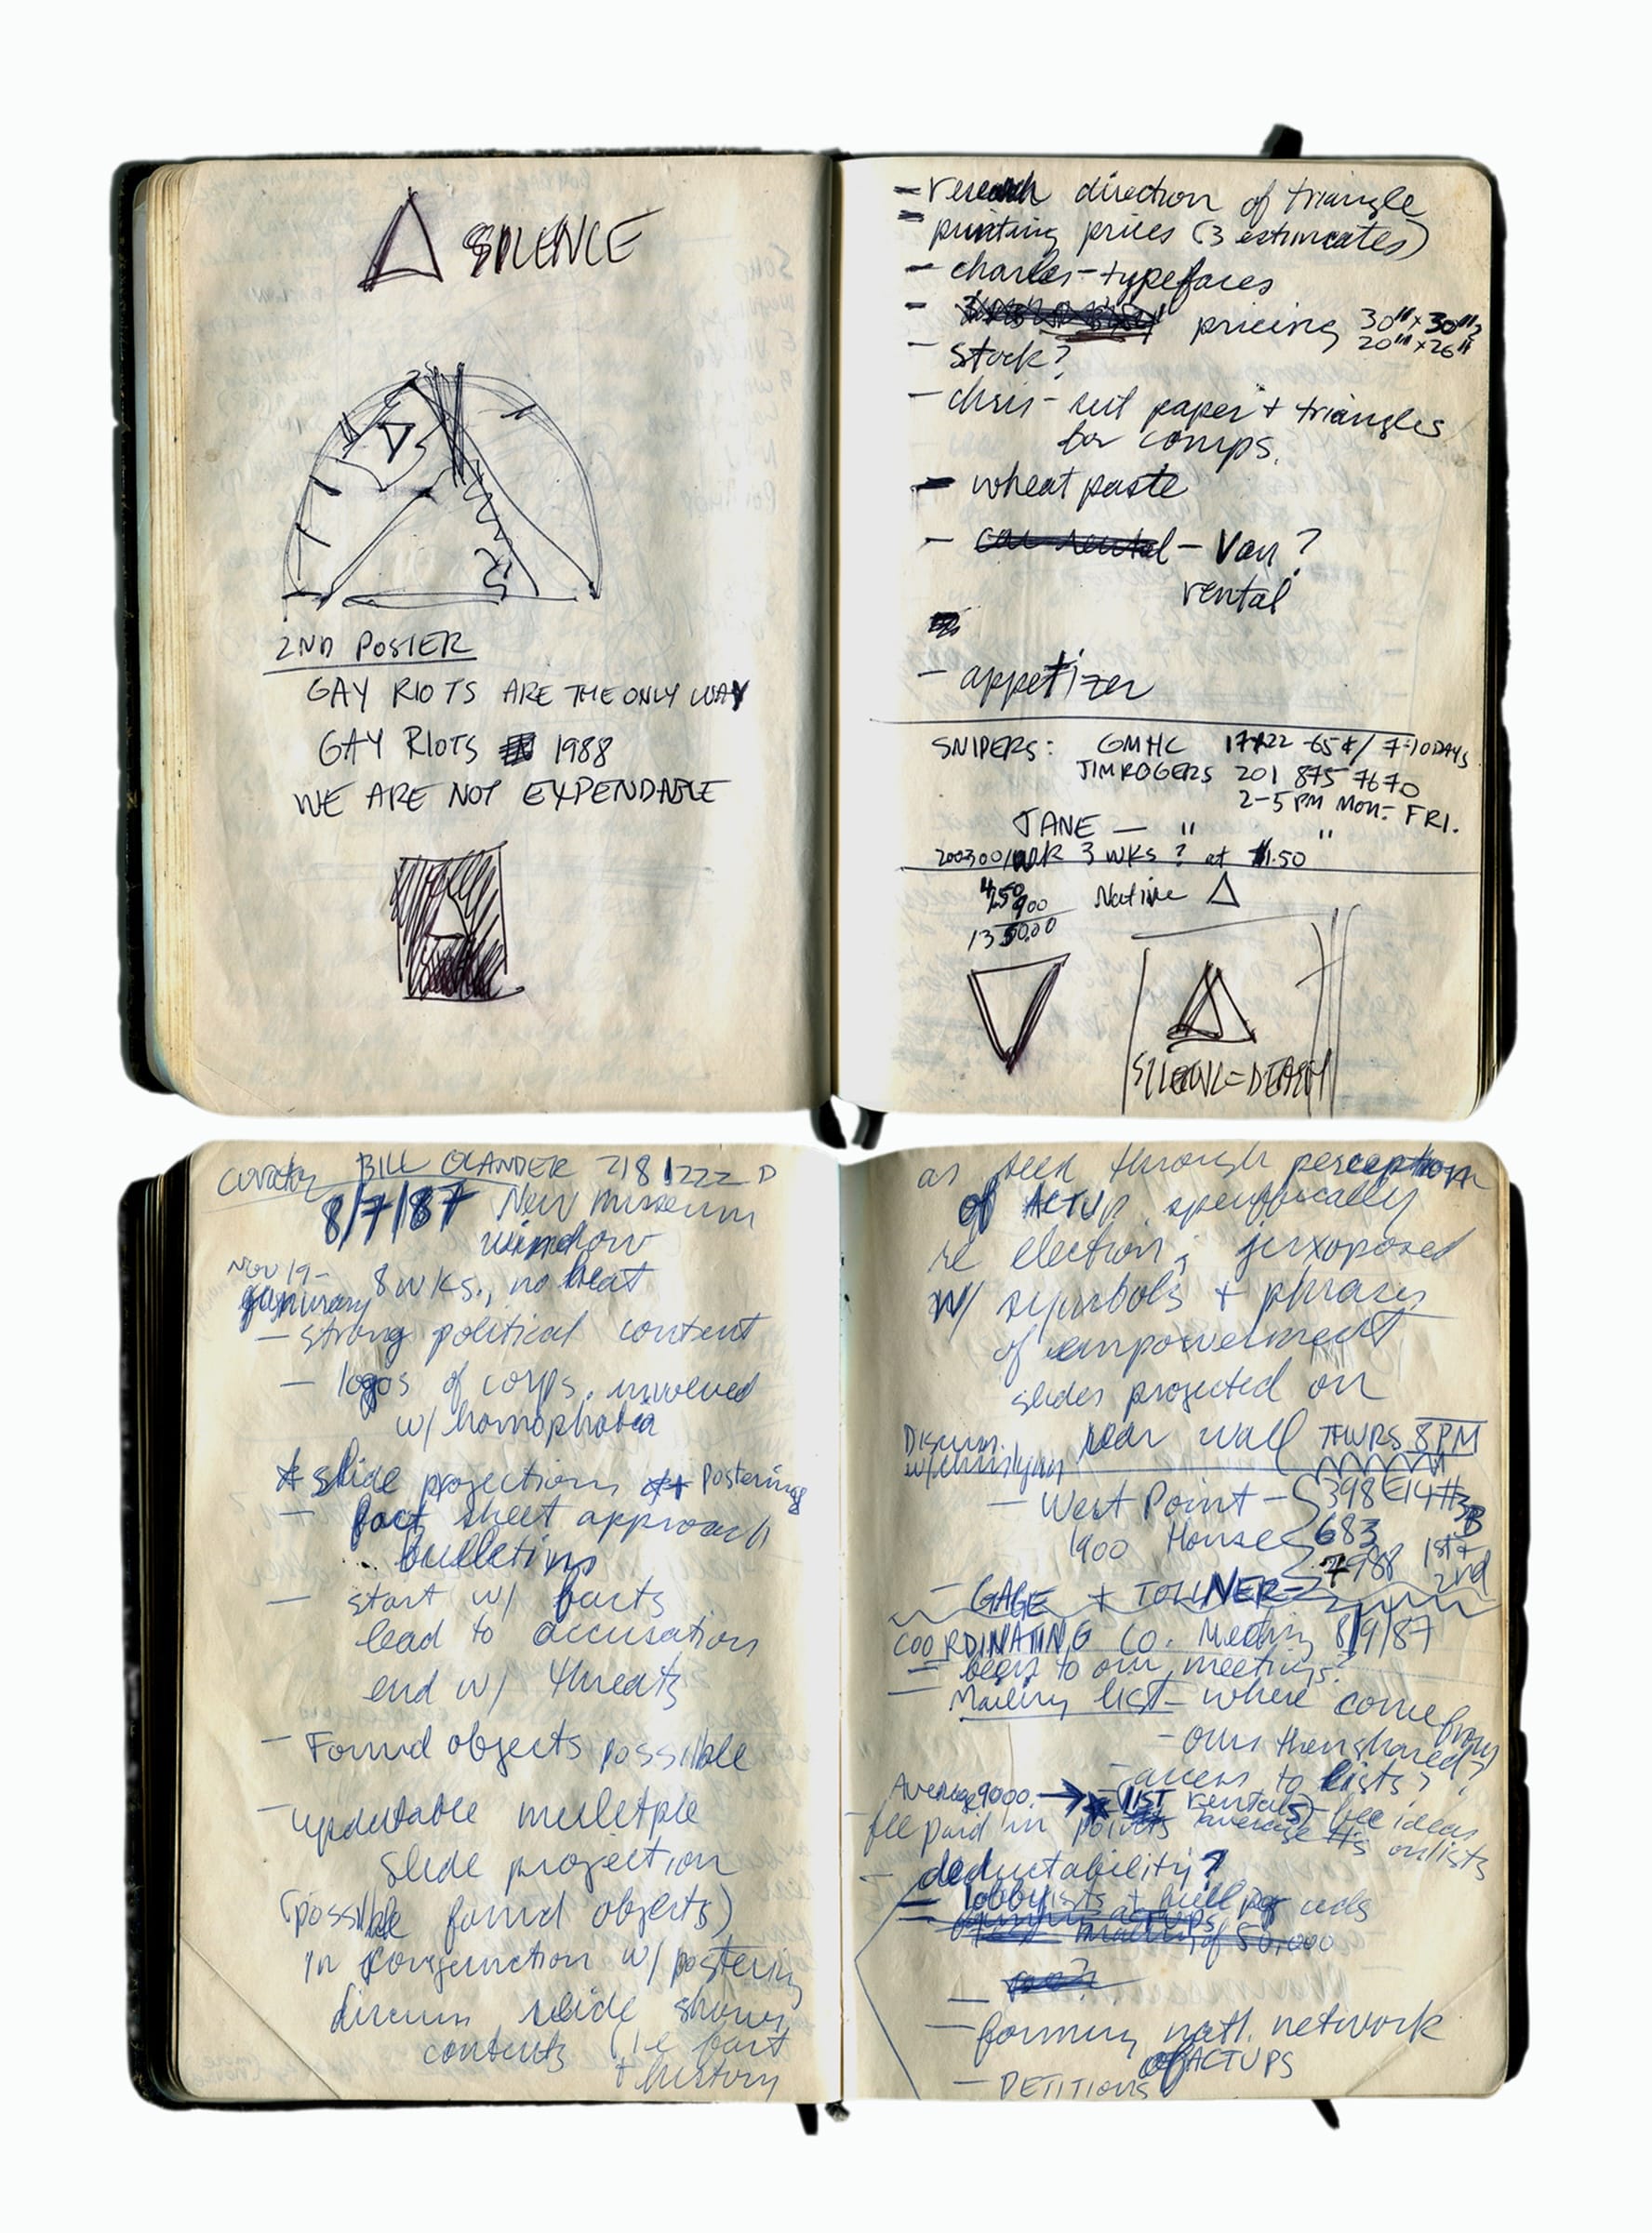 SILENCE
2ND POSTER
GAY RIOTS ARE THE ONLY WAY
GAY RIOTS 1988
WE ARE NOT EXPENDABLE
– research direction of triangle
– printing prices (3 estimates)
– charles – typefaces
– pricing 30"x30"?
20"x26"
– stock?
– chris – cut paper + triangles
for comps.
– wheat paste
– car rental – Van?
rental
– appetizer
SNIPERS: GMHC 17x22 - 65¢/7-10 DAYS
JIM ROGERS 201 875 7670
2-5 PM MON-FRI.
JANE — " "
3 WKS? at $1.50 "
450 Native
900
1350.00
SILENCE=DEATH
Curator BILL OLANDER 218 1222 D
8/7/87 New Museum
window
NOV 19 –
January 8 WKS., no heat
– strong political content
– logos of corps. involved
w/ homophobia
* slide projections ** Postering
– fact sheet approach
bulletins
– start w/ facts
lead to accusation
end w/ threats
– Found objects possible
– updatable multiple
slide projection
(possible found objects)
in conjunction w/ postering
discuss slide shows
contents (ie fact
+ history
as seen through perception
of ACTUP specifically
re election; juxoposed
w/ symbols + phrases
of empowerment
slides projected on
rear wall THURS 8PM
Discuss.
– West Point – 398 E14 #3B
1900 House 683
7988 1st + 2nd
– GAGE + TOLLNER –
COORDINATING CO. Meeting 8/9/87
– begs to our meetings?
– Mailing list – where come from
– ours then shared?
– access to lists?
Average 9000. → * (LIST rentals) – fee ideas
– fee paid in points average #s on lists
– deductability?
– lobbyists +
mailing of 50,000
– forming natl. network
of ACTUPS
– PETITIONS